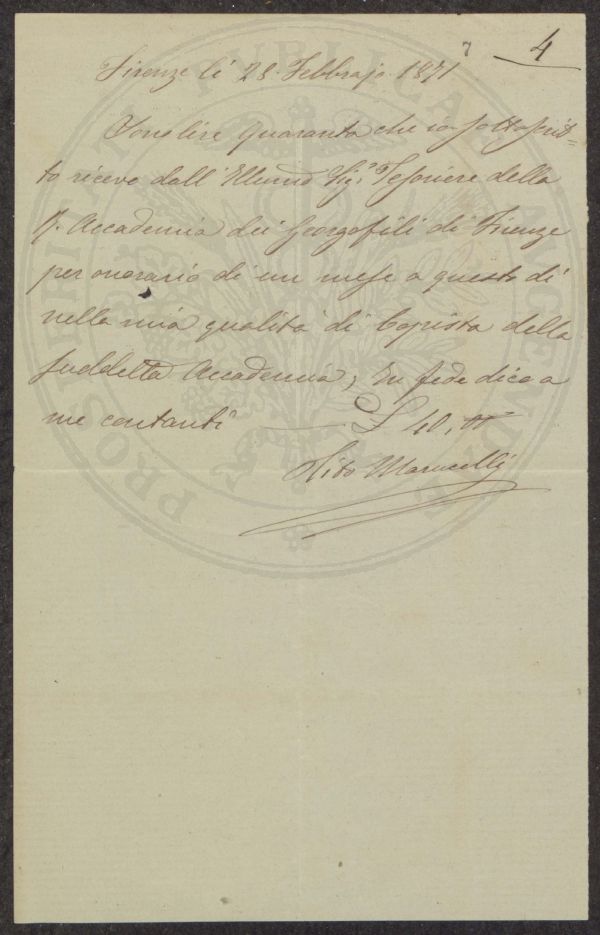 7 4
Firenze li 28. Febbrajo 1871
Sono lire Quaranta che io sottoscrit=
to riceve dall' Illumo Sigr Tesoriere della
R. Accademia dei Georgofili di Firenze
per onorario di un mese a questo dì
nella mia qualità di Copista della
suddetta Accademia, In fede dico a
me contanti — £ 40,00
Tito Marucelli
PROSPERITATI PUBLICAE AUGENDAE